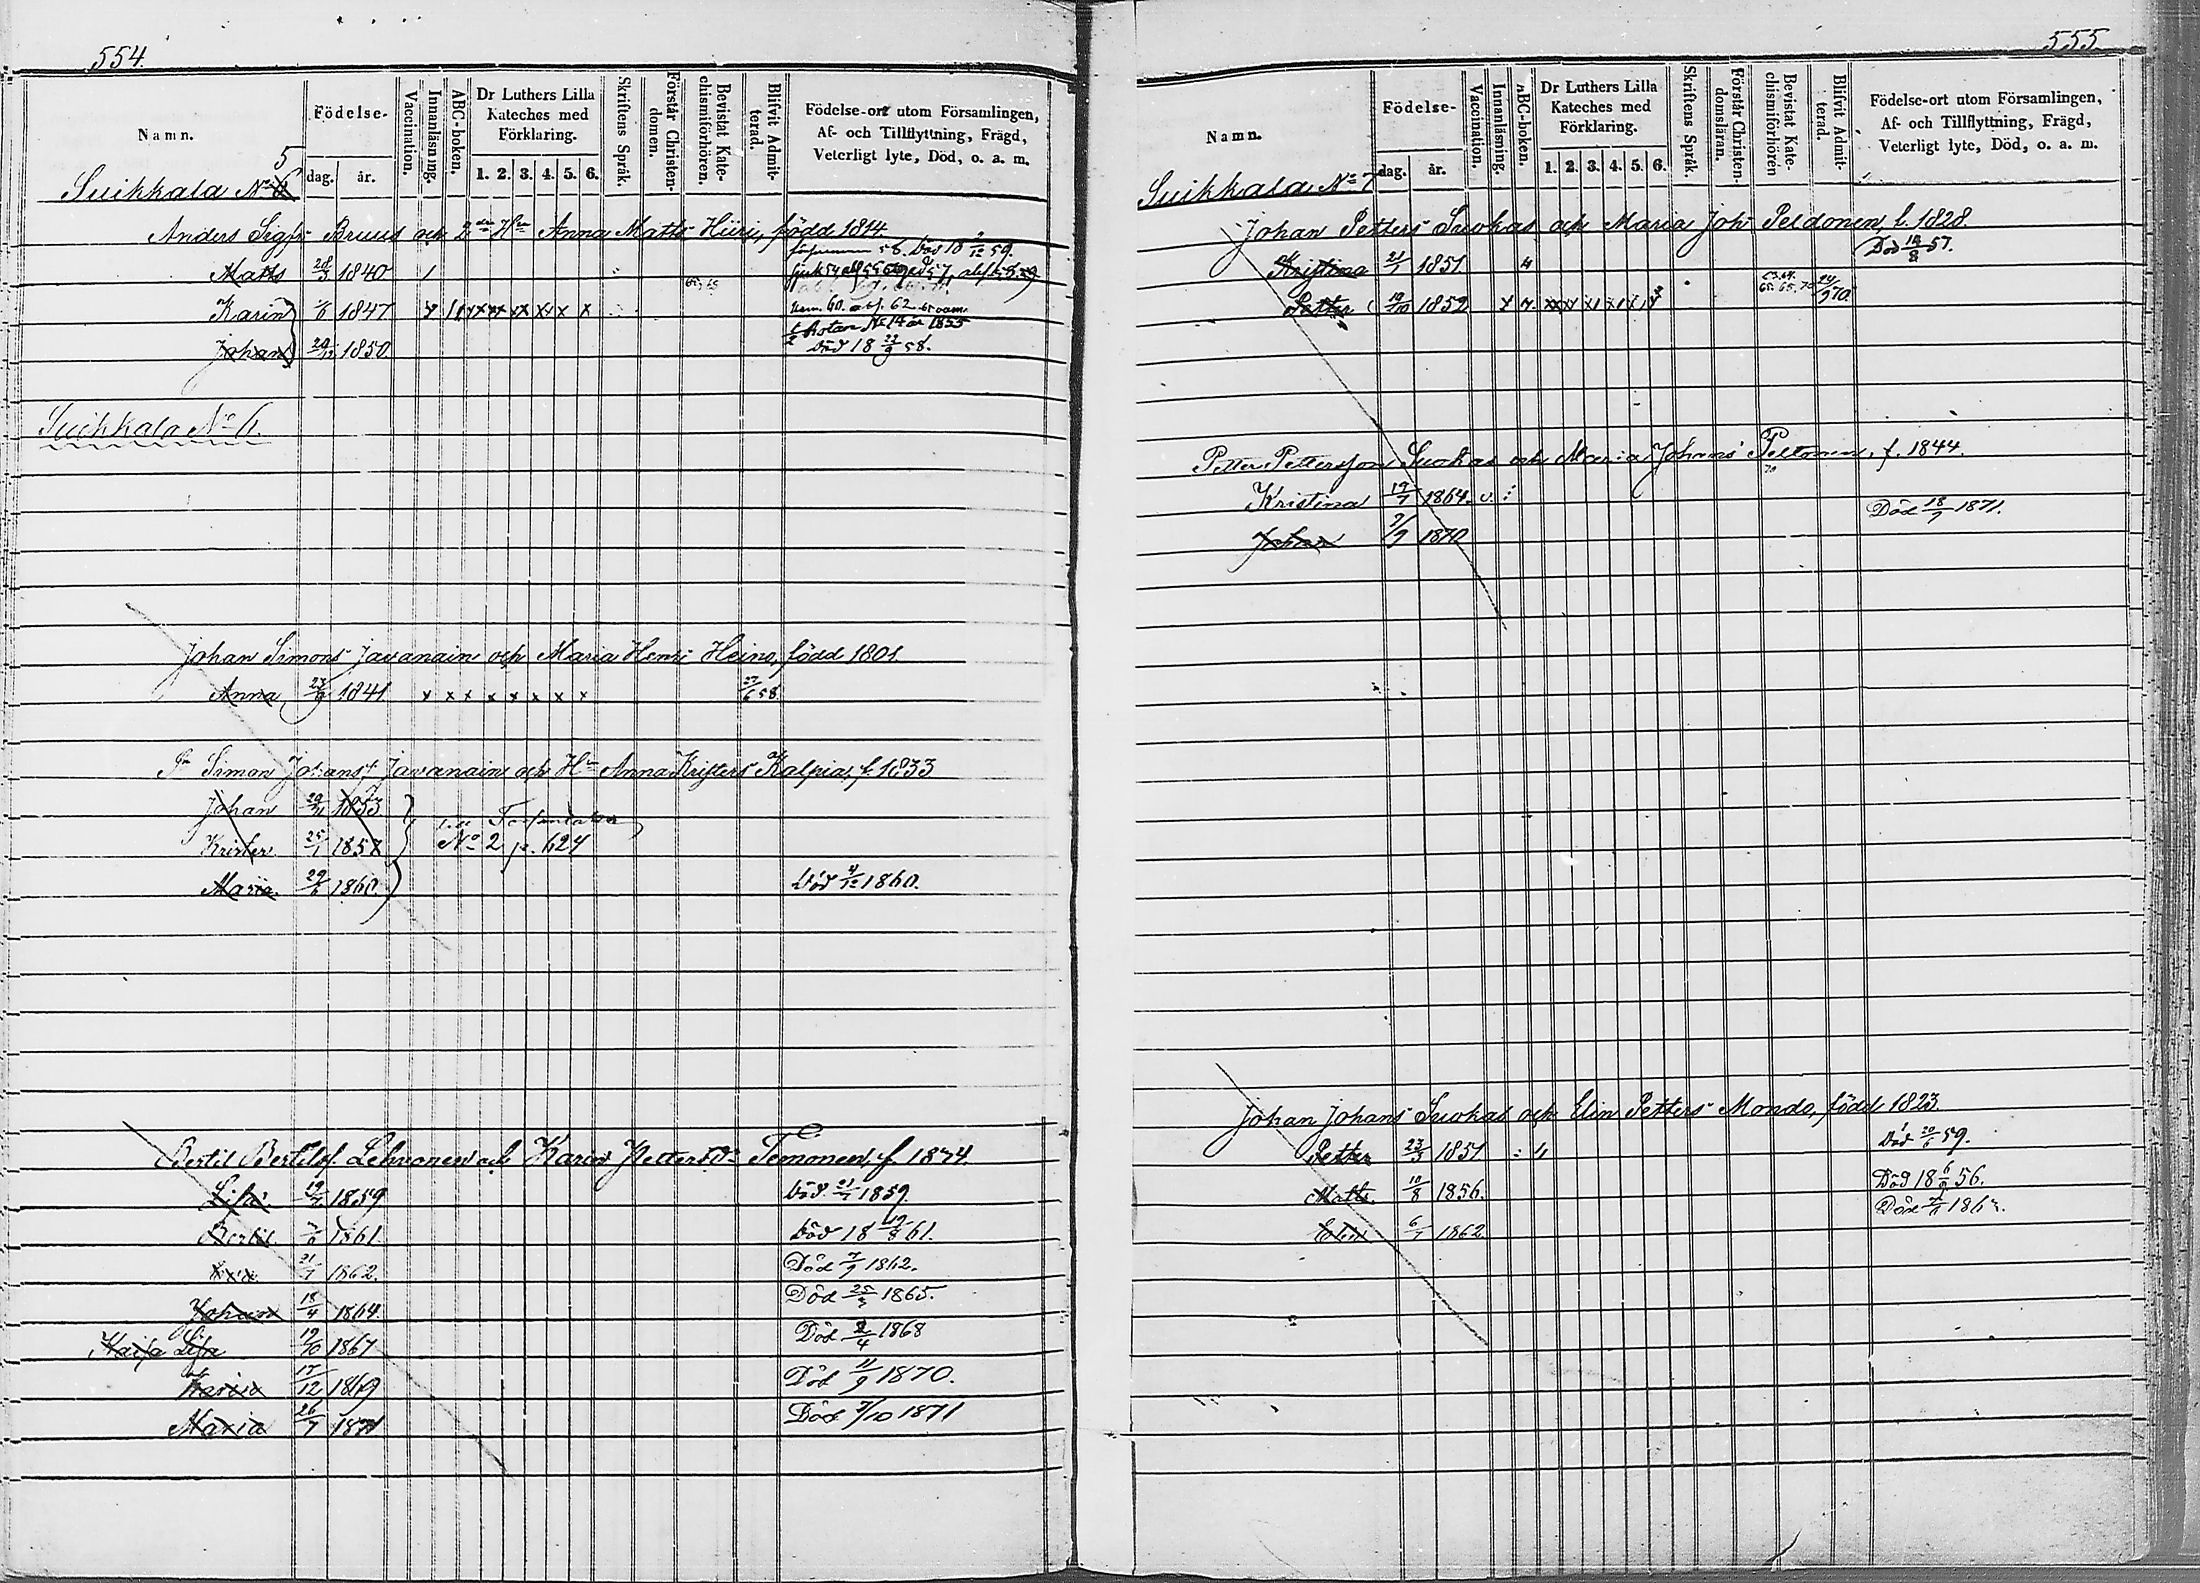 554.
Namn.
Födelse-
dag. år.
Vaccination.
Innanläsning.
ABC-boken.
Dr Luthers Lilla
Kateches med
Förklaring.
1. 2. 3. 4. 5. 6.
Skriftens Språk.
Förstår Christen-
domen.
Bevistat Kate-
chismiförhören.
Blifvit Admit-
terad.
Födelse-ort utom Församlingen,
Af- och Tillflyttning, Frägd,
Veterligt lyte, Död, o. a. m.
5
Suikkala No 6
Anders Sigfr: Bruus och 2dra Hu Anna Matts Hüri, född 1814
Matts 28/3 1840 Död 18 2/12 59.
Karin 1847
Rotar No 14 år 1855
Johan 20/12 1850 Död 18 23/9 58.
Suikkala No 6.
Johan Simons Javanain och Maria Henr: Heino, född 1801.
Anna 23/9 1841 x x x x x x x x 27/6 58
Simon Johansf Javanain och Hu Anna Kristers Kalpia, f. 1833
Johan 1853
Krister 25/1 1857 No 2 p. 624
Maria 29/6 1860. Död 4/12 1860.
Bertil Bertilsf. Lehvonen och Karin Petters Dr Temonen, f. 1834.
Lisa 19/7 1859 Död 21/7 1859.
Bertil 1861. Död 18 19/8 61.
21/7 1862. Död 7/9 1862.
Johan 18/4 1864. Död 25/3 1865.
Maija Lisa 19/10 1867 Död 2/4 1868
Maria 17/12 1869 Död 11/9 1870.
Maria 26/7 1871 Död 7/10 1871
555
Namn.
Födelse-
dag. år.
Vaccination.
Innanläsning.
ABC-boken.
Dr Luthers Lilla
Kateches med
Förklaring.
1. 2. 3. 4. 5. 6.
Skriftens Språk.
Förstår Christen-
domsläran.
Bevistat Kate-
chismiförhören
Blifvit Admit-
terad.
Födelse-ort utom Församlingen,
Af- och Tillflyttning, Frägd,
Veterligt lyte, Död, o. a. m.
Suikkala No 7
Johan Petters Suokas och Maria Joh: Peldonen, f. 1828.
Kristina 21/1 1851. Död 18/8 57.
Petter 19/10 1852
Petter Pettersson Suokas och Maria Johans Peltonen, f. 1844.
Kristina 19/7 1864. v.
Johan 7/9 1870 Död 18/7 1871.
Johan Johans Suokas och Elin Petters Mondo, född 1823.
Petter 23/3 1851 Död 20/6 59.
Matts. 10/8 1856. Död 18 6/9 56.
Elin 6/1 1862